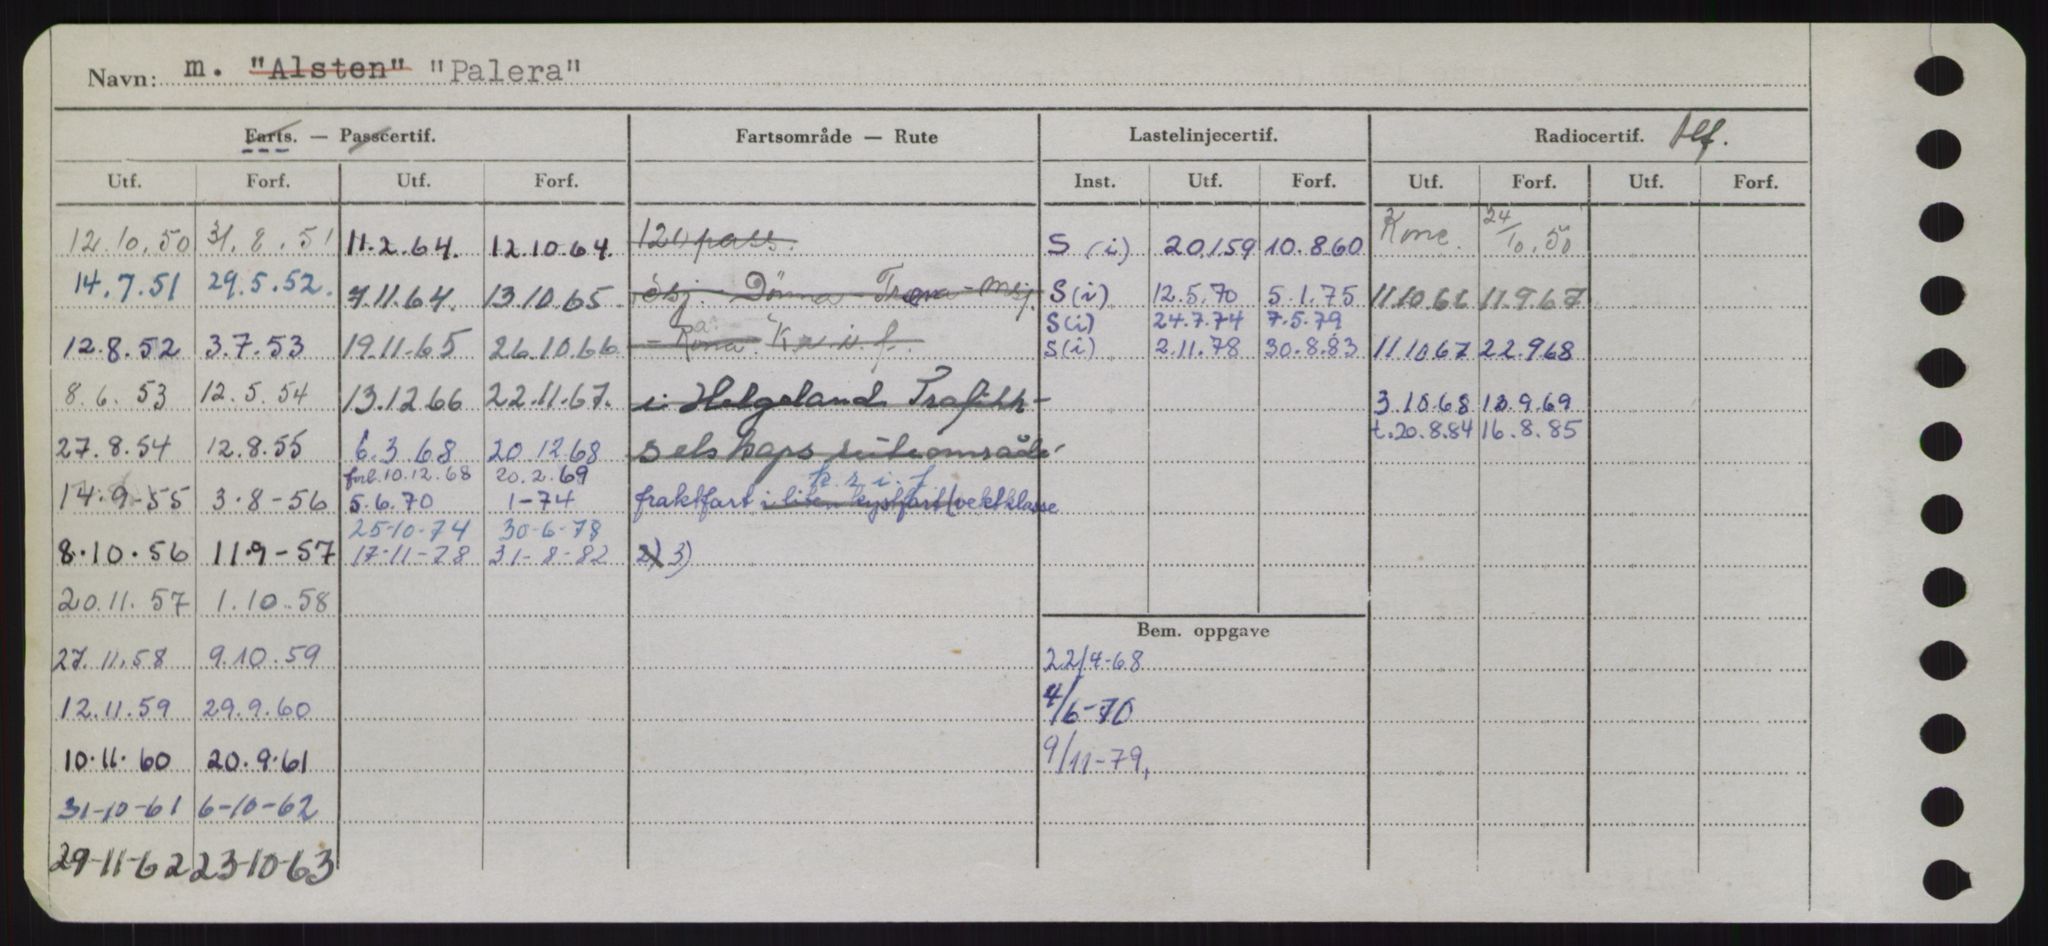 Navn: m. "Alsten" "Palera"
Farts. — Passcertif. Fartsområde — Rute Lastelinjecertif. Radiocertif. tlf.
Utf. Forf. Utf. Forf. Inst. Utf. Forf. Utf. Forf. Utf. Forf.
12.10.50 31.8.51 11.2.64. 12.10.64. 120 pass. S (i) 20.1.59 10.8.60 Konc. 24/10.50
14.7.51 29.5.52. 7.11.64. 13.10.65. Sbj. Dönna - Træna - Msj. S (i) 12.5.70 5.1.75 11.10.66 11.9.67
S (i) 24.7.74 7.5.79
12.8.52 3.7.53 19.11.65 26.10.66 S (i) 2.11.78 30.8.83 11.10.67 22.9.68
8.6.53 12.5.54 13.12.66 22.11.67. i Helgeland Trafikk- 3.10.68 13.9.69
t.20.8.84 16.8.85
27.8.54 12.8.55 6.3.68 20.12.68 selskaps ruteområde
forl.10.12.68 20.2.69 k.r.i.f.
14.9-55 3.8-56 5.6.70 1-74 fraktfart i liten kystfart (vektklasse
25-10-74 30-6-78
8.10.56 11.9-57 17-11-78 31-8-82 2) 3)
20.11.57 1.10.58
Bem. oppgave
27.11.58 9.10.59 22/4-68
12.11.59 29.9.60 4/6-70
10.11.60 20.9.61 9/11-79,
31-10-61 6-10-62
29-11-62 23-10-63